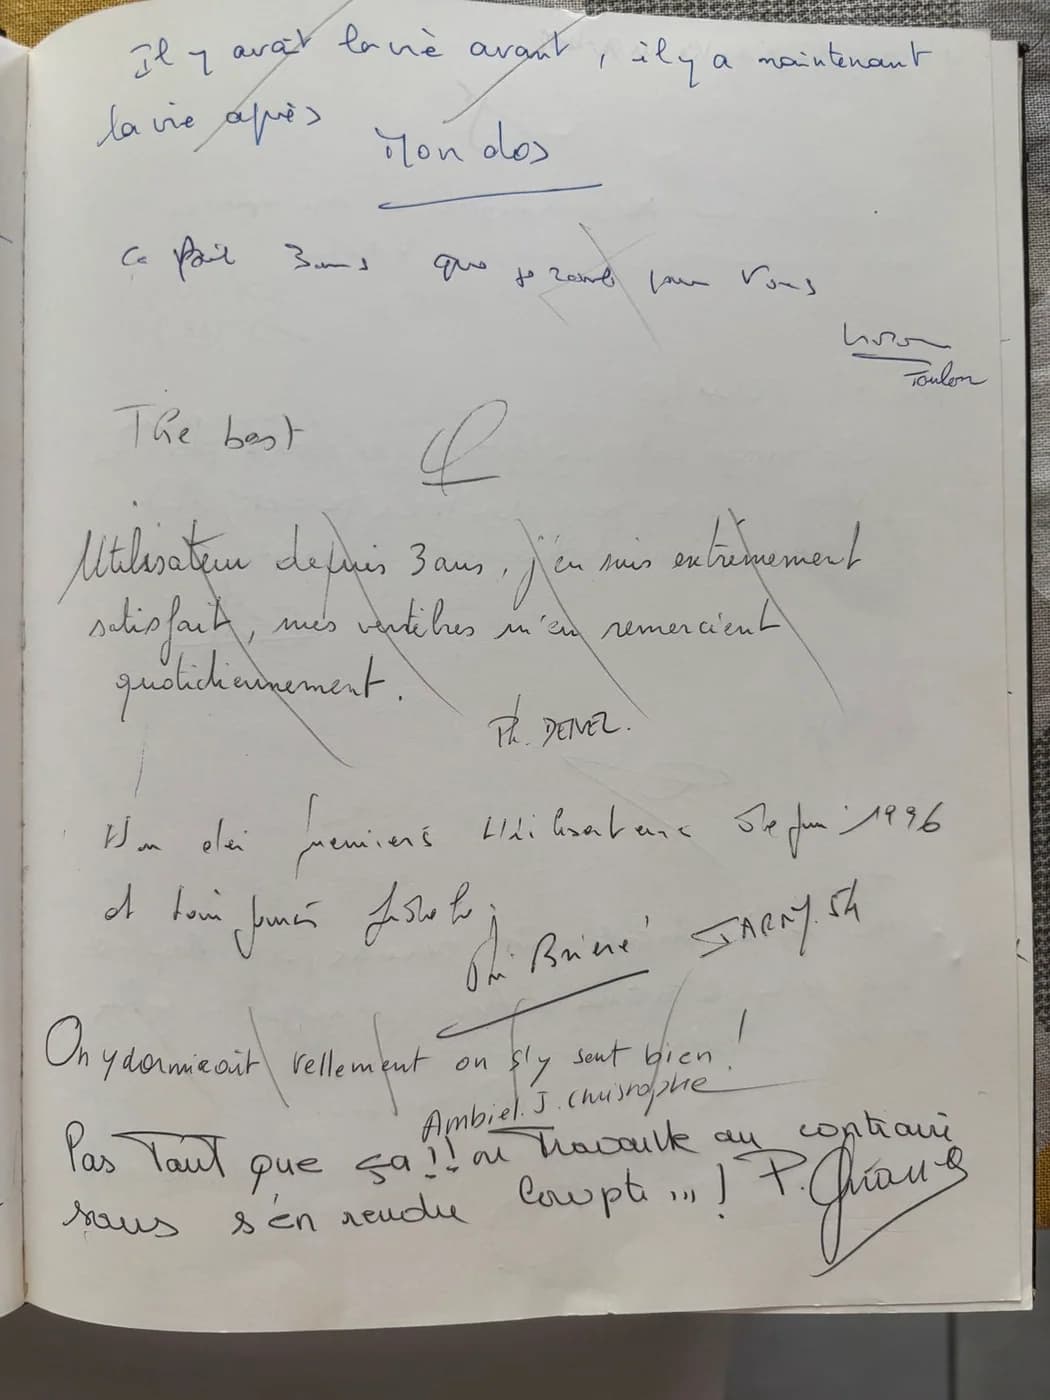 Il y avait la vie avant, il y a maintenant
la vie après
Mon dos
Ce fait 3 ans que je roule pour vous
Toulon
The best
Utilisateur depuis 3 ans, j'en suis extrêmement
satisfait, mes vertèbres m'en remercient
quotidiennement.
Ph. DENEZ.
Un des premiers utilisateurs depuis 1996
et toujours fidèle.
Brieré JARNY. 54
On y dormirait rellement on s'y sent bien !
Ambiel. J. Christophe
Pas Tant que ça !! on Travaille au contraire
sans s'en rendre compte ... ! P.